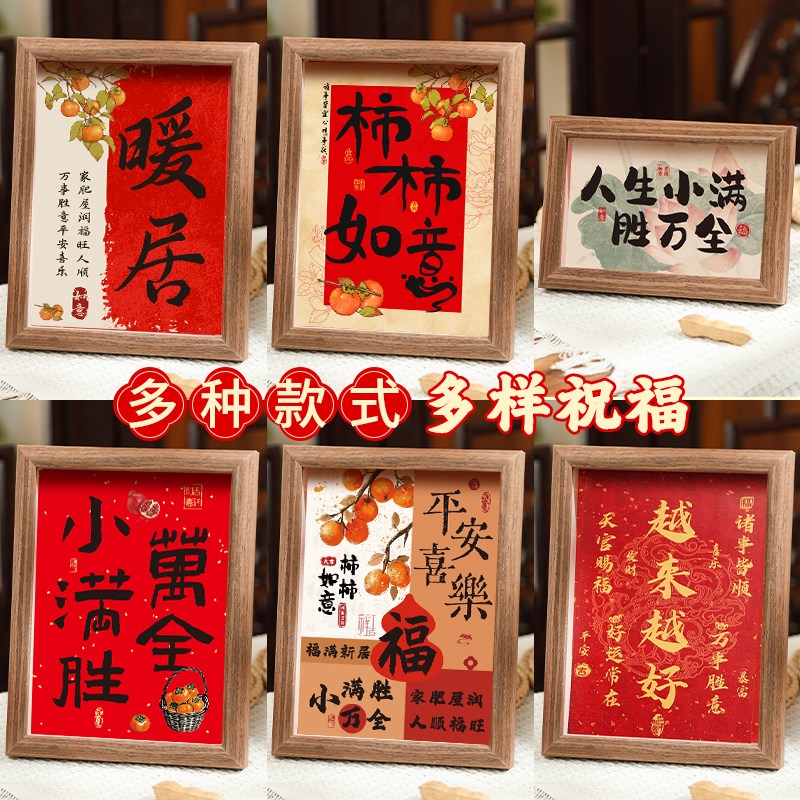 暖居
家肥屋润福旺人顺
万事胜意平安喜乐
如意
柿柿如意
人生小满
胜万全
福
多种款式 多样祝福
小满胜
萬全
平安
喜樂
柿柿
如意
大吉
福
福满新居
小满胜
万全
家肥屋润
人顺福旺
越来越好
诸事皆顺
喜乐
发财
天官赐福
万事胜意
暴富
好运常在
平安